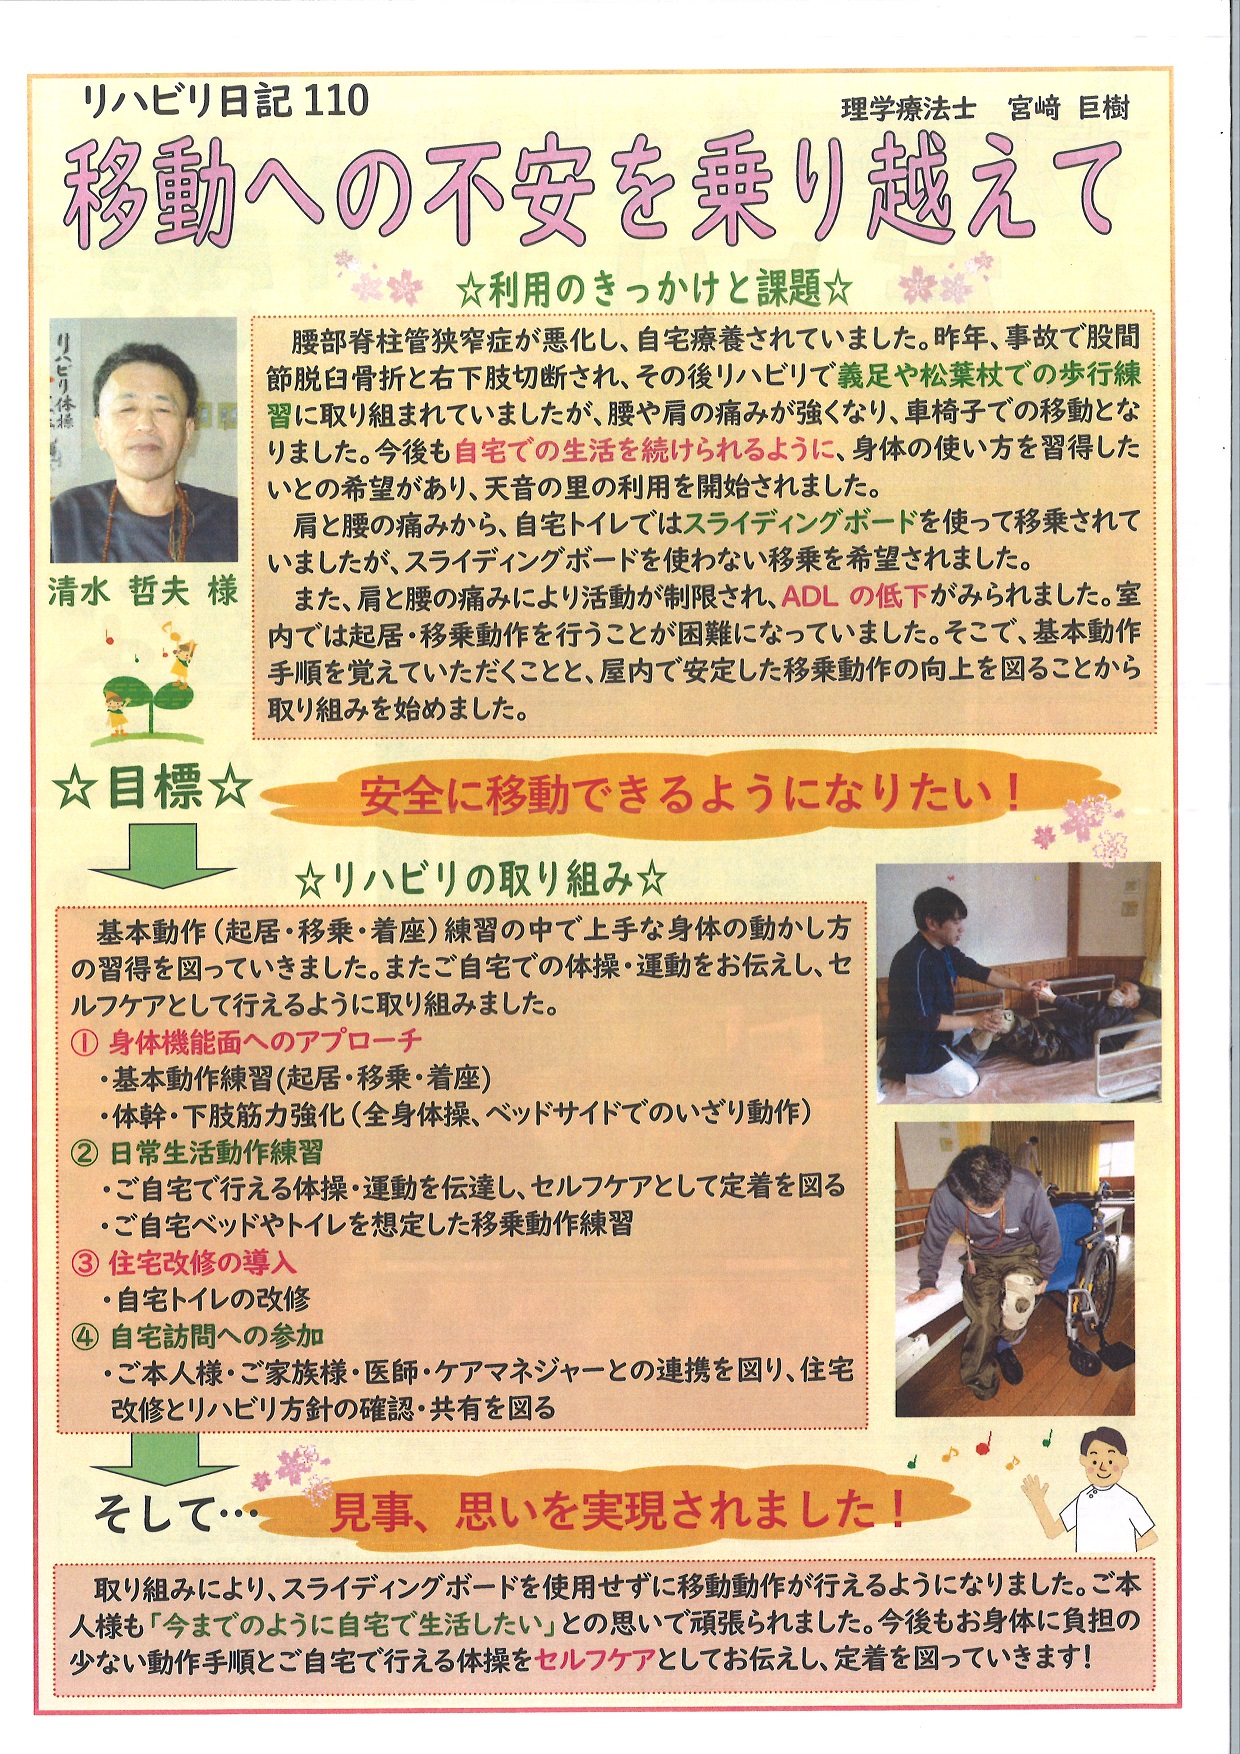 リハビリ日記 110
理学療法士　宮﨑 巨樹
移動への不安を乗り越えて
☆利用のきっかけと課題☆
リハビリ体操
清水 哲夫 様
腰部脊柱管狭窄症が悪化し、自宅療養されていました。昨年、事故で股間
節脱臼骨折と右下肢切断され、その後リハビリで義足や松葉杖での歩行練
習に取り組まれていましたが、腰や肩の痛みが強くなり、車椅子での移動とな
りました。今後も自宅での生活を続けられるように、身体の使い方を習得した
いとの希望があり、天音の里の利用を開始されました。
肩と腰の痛みから、自宅トイレではスライディングボードを使って移乗されて
いましたが、スライディングボードを使わない移乗を希望されました。
また、肩と腰の痛みにより活動が制限され、ADL の低下がみられました。室
内では起居・移乗動作を行うことが困難になっていました。そこで、基本動作
手順を覚えていただくことと、屋内で安定した移乗動作の向上を図ることから
取り組みを始めました。
☆目標☆
安全に移動できるようになりたい！
☆リハビリの取り組み☆
基本動作（起居・移乗・着座）練習の中で上手な身体の動かし方
の習得を図っていきました。またご自宅での体操・運動をお伝えし、セ
ルフケアとして行えるように取り組みました。
① 身体機能面へのアプローチ
・基本動作練習(起居・移乗・着座)
・体幹・下肢筋力強化（全身体操、ベッドサイドでのいざり動作）
② 日常生活動作練習
・ご自宅で行える体操・運動を伝達し、セルフケアとして定着を図る
・ご自宅ベッドやトイレを想定した移乗動作練習
③ 住宅改修の導入
・自宅トイレの改修
④ 自宅訪問への参加
・ご本人様・ご家族様・医師・ケアマネジャーとの連携を図り、住宅
改修とリハビリ方針の確認・共有を図る
そして…
見事、思いを実現されました！
取り組みにより、スライディングボードを使用せずに移動動作が行えるようになりました。ご本
人様も「今までのように自宅で生活したい」との思いで頑張られました。今後もお身体に負担の
少ない動作手順とご自宅で行える体操をセルフケアとしてお伝えし、定着を図っていきます！